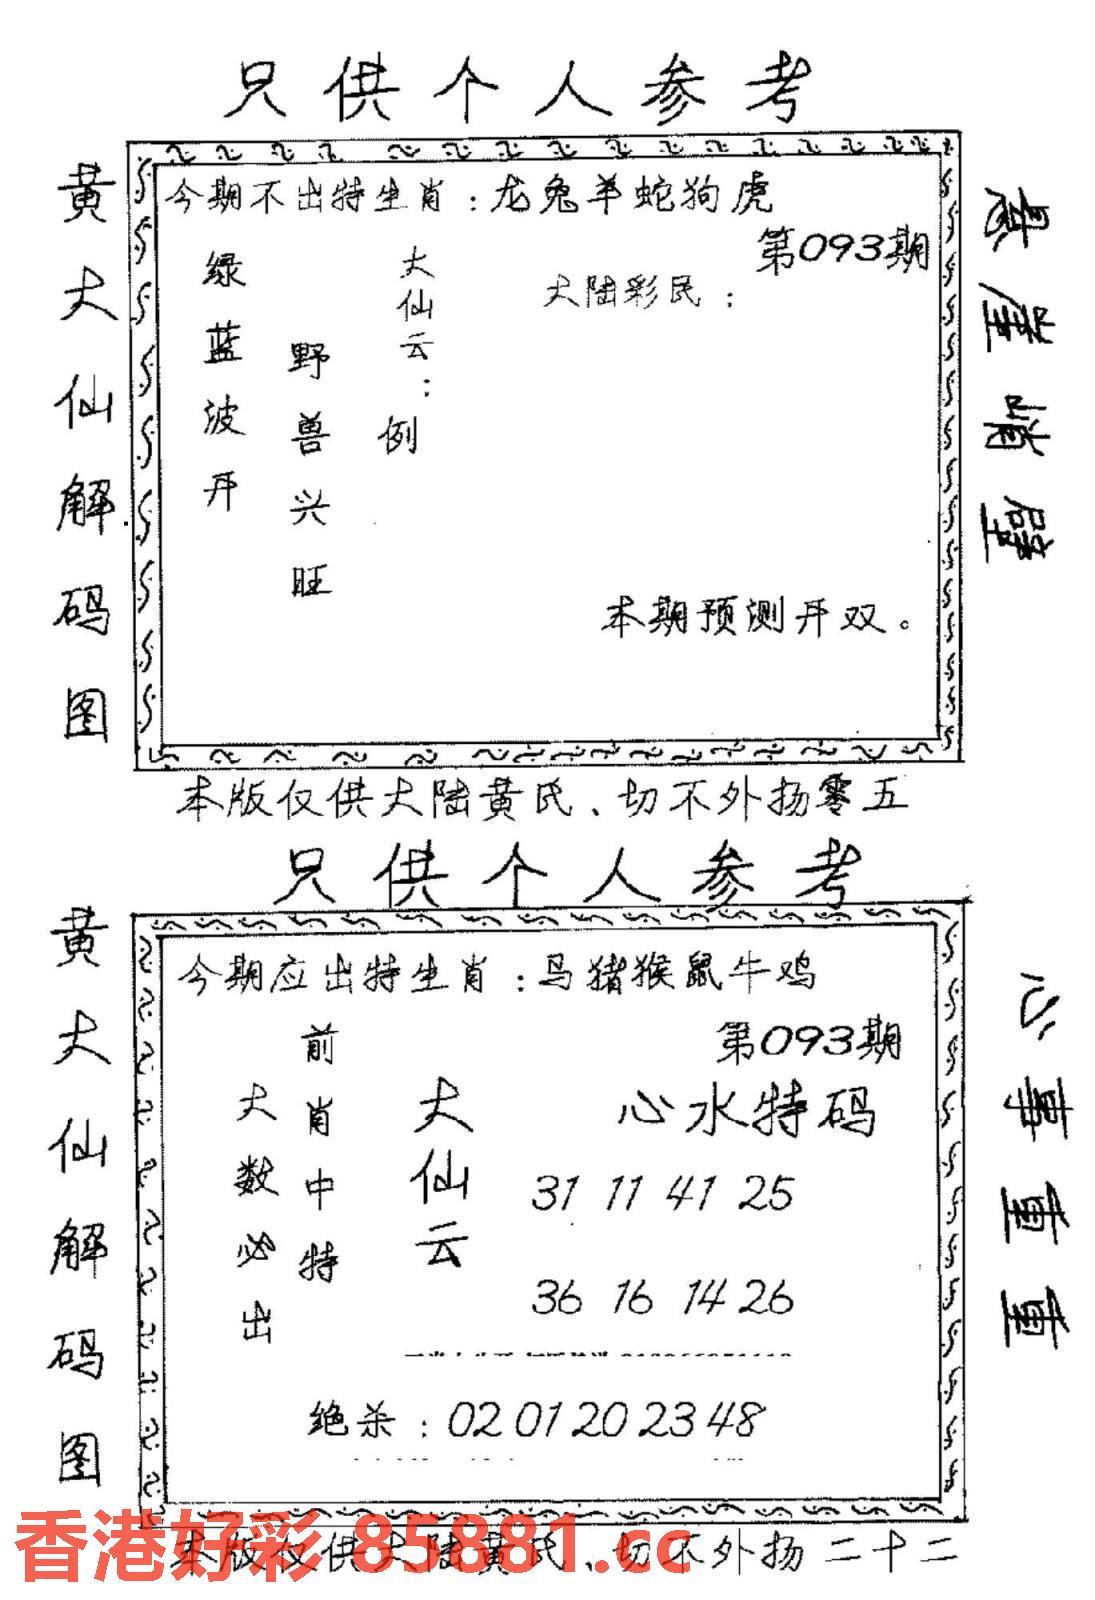 只供个人参考
黄大仙解码图
今期不出特生肖：龙兔羊蛇狗虎
第093期
大陆彩民：
大仙云：
例
野兽兴旺
绿蓝波开
本期预测开双。
悬崖峭壁
本版仅供大陆黄氏、切不外扬零五
只供个人参考
黄大仙解码图
今期应出特生肖：马猪猴鼠牛鸡
第093期
心水特码
大仙云
前肖中特
大数必出
31 11 41 25
36 16 14 26
绝杀：02 01 20 23 48
心事重重
本版仅供大陆黄氏、切不外扬二十二
香港好彩 85881.cc